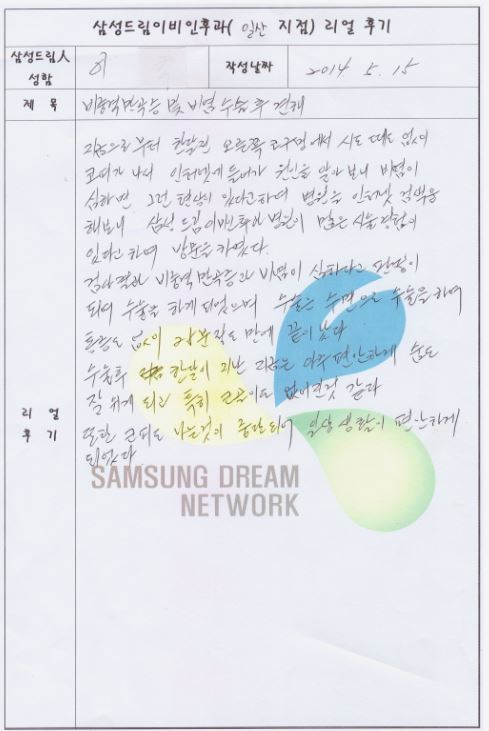 삼성드림이비인후과( 일산 지점) 리얼 후기
삼성드림人 성함 이
작성날짜 2014 5. 15
제 목 비중격만곡증 및 비염 수술 후 견해
리 얼 후 기
지금으로부터 한달전 오른쪽 코구멍에서 시도 때도 없이
코피가 나서 인터넷에 들어가 원인을 알아보니 비염이
심하면 그런 현상이 있다고하여 병원을 인터넷 검색을
해보니 삼성드림이비인후과병원이 많은 시술경험이
있다고 하여 방문을 하였다.
검사결과 비중격만곡증과 비염이 심하다고 판정이
되어 수술을 하게 되었으며 수술은 수면으로 수술을 하여
통증도 없이 정도 만에 끝이났다
수술후 한달이 지난 지금은 아주 편안하게 숨도
잘 쉬게 되고 특히 코골이도 없어진것 같다
또한 코피도 나는것이 중단되어 일상생활이 편안하게
되었다
SAMSUNG DREAM
NETWORK